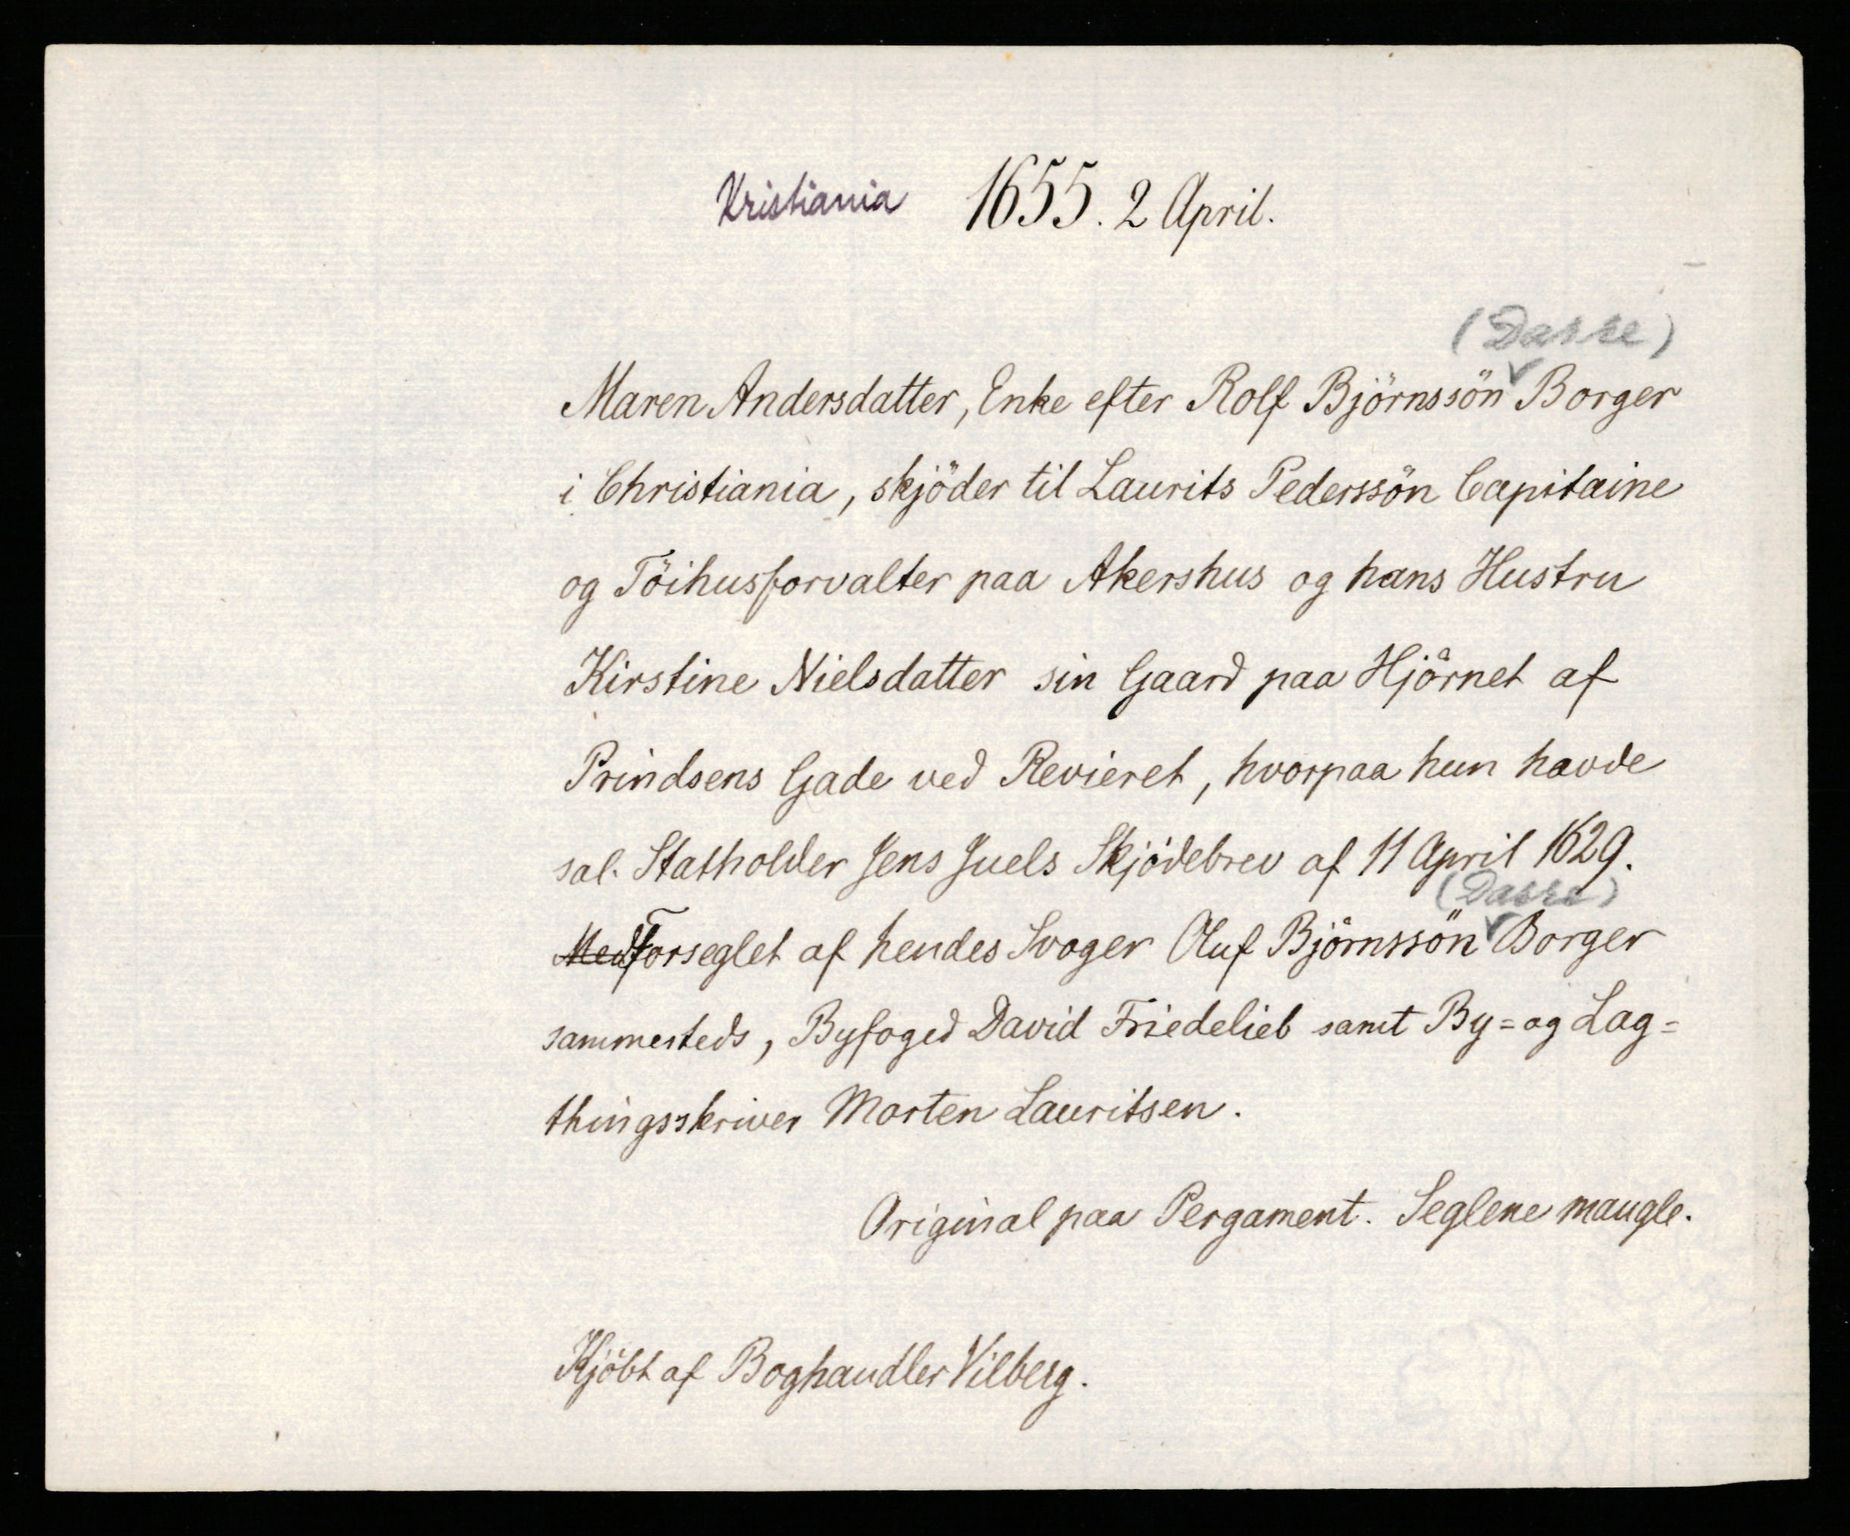 Kristiania 1655. 2 April.
(Dasse)
Maren Andersdatter, Enke efter Rolf Björnssön Borger
i Christiania, skjöder til Laurits Pederssön Capitaine
og Töihusforvalter paa Akershus og hans Hustru
Kirstine Nielsdatter sin Gaard paa Hjörnet af
Prindsens Gade ved Revieret, hvorpaa hun havde
sal. Statholder Jens Juels Skjödebrev af 11 April 1629.
(Dasse)
Med Forseglet af hendes Svoger Oluf Björnssön Borger
sammesteds, Byfoged David Friedelieb samt By= og Lag=
thingsskriver Morten Lauritsen.
Original paa Pergament. Seglene mangle.
Kjöbt af Boghandler Vilberg.